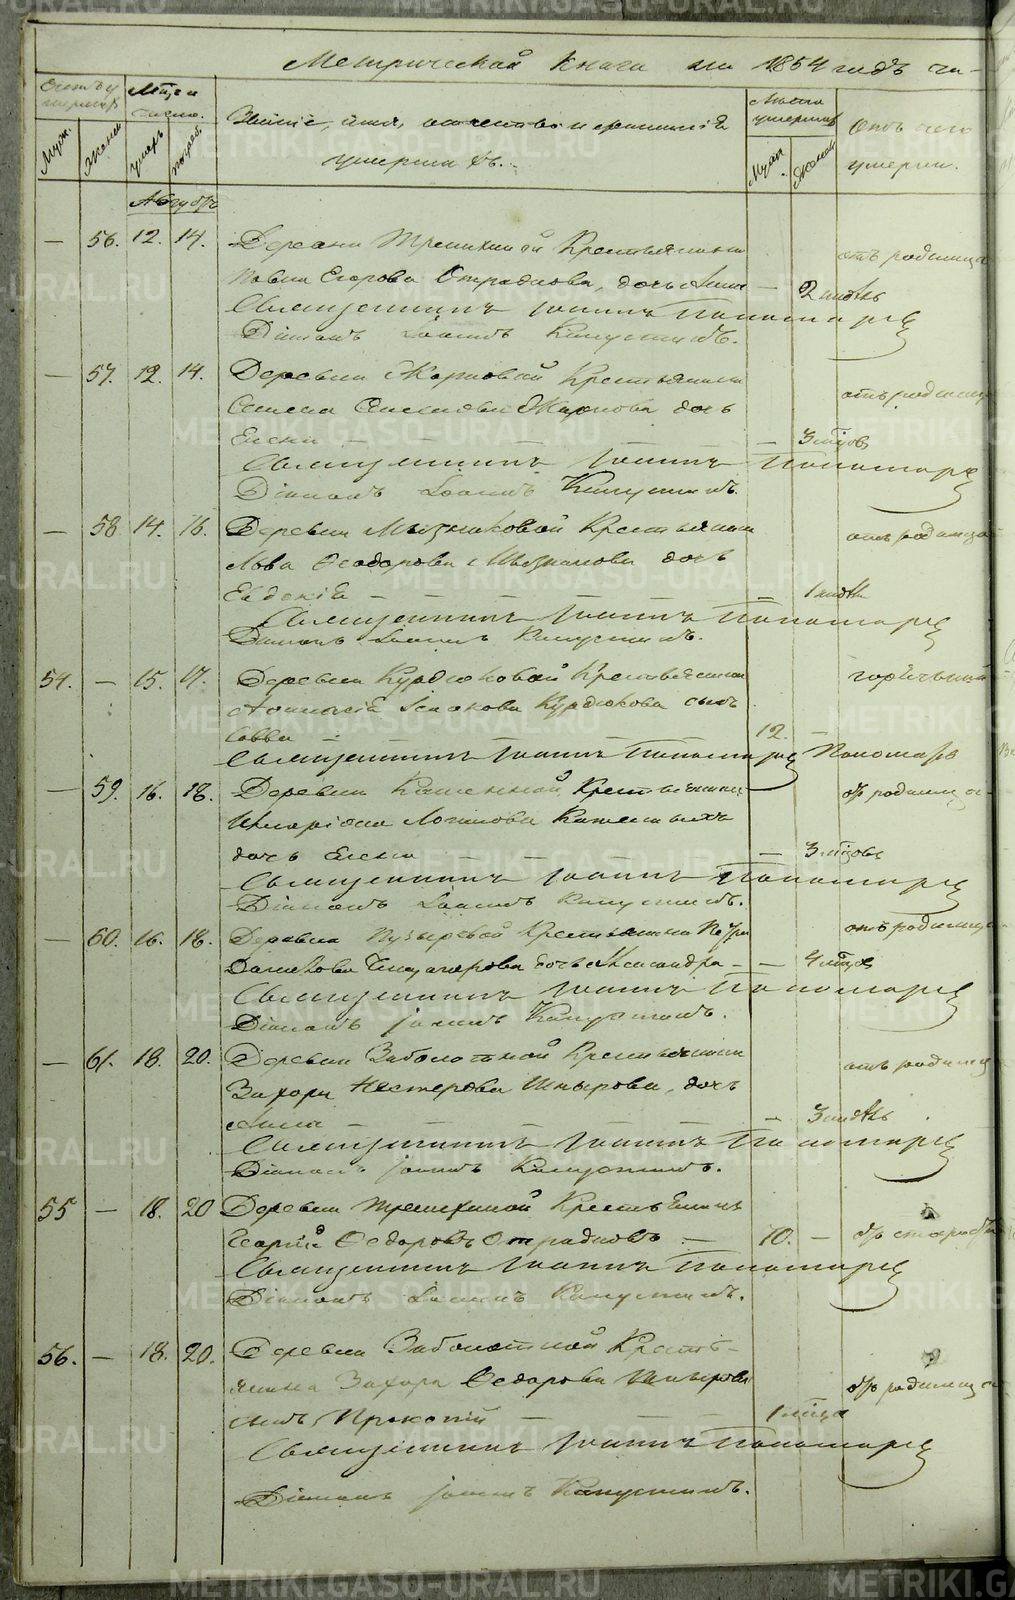 Метрической книги на 1854 годъ ча-
Счетъ умершихъ
Мѣсяцъ и число.
Званіе, имя, отчество и фамилія умершихъ.
Лѣта умершихъ
Отъ чего умерли.
Муж.
Женск.
умерш.
погреб.
Муж.
Женск.
— 56. 12. 14. Деревни Трешкиной Крестьянина
Егорова Отрадкова, дочь Анна — 2 недѣль отъ родимца
Священникъ Іоаннъ Пономаревъ
Діаконъ Іоаннъ Капустинъ.
— 57. 12. 14. Деревни Жарковой Крестьянина отъ родимца
Жаркова дочь
Елена — — — — 3 мѣсяцовъ
Священникъ Іоаннъ Пономаревъ
Діаконъ Іоаннъ Капустинъ.
— 58 14. 16. Деревни Мызниковой Крестьянина отъ родимца
Льва Ѳеодорова Мызникова дочь
Евдокія — — — — 1 недѣли
Священникъ Іоаннъ Пономаревъ
Діаконъ Іоаннъ Капустинъ.
54. — 15. 17. Деревни Курдюковой Крестьянина горячкой
Аѳанасія Исакова Курдюкова сынъ
Савва — — — 12. —
Священникъ Іоаннъ Пономаревъ Пономаревъ
— 59. 16. 18. Деревни Каменной Крестьянина отъ родимца
Иларіона Логинова Каменныхъ
дочь Елена — — — — 3 мѣсяцовъ
Священникъ Іоаннъ Пономаревъ
Діаконъ Іоаннъ Капустинъ.
— 60. 16. 18. Деревни Пузыревой Крестьянина Петра отъ родимца
Данилова дочь Александра — — 4 мѣсяцовъ
Священникъ Іоаннъ Пономаревъ
Діаконъ Іоаннъ Капустинъ.
— 61. 18. 20. Деревни Заболотной Крестьянина отъ родимца
Захара Нестерова дочь
Анна — — — — 3 недѣль
Священникъ Іоаннъ Пономаревъ
Діаконъ Іоаннъ Капустинъ.
55 — 18. 20 Деревни Трешкиной Крестьянинъ
Ѳедоровъ Отрадковъ — 70. — отъ старости
Священникъ Іоаннъ Пономаревъ
Діаконъ Іоаннъ Капустинъ.
56. — 18. 20. Деревни Заболотной Кресть-
янина Захара Ѳедорова отъ родимца
сынъ Прокопій — — — 1 мѣсяца
Священникъ Іоаннъ Пономаревъ
Діаконъ Іоаннъ Капустинъ.
METRIKI.GASO-URAL.RU